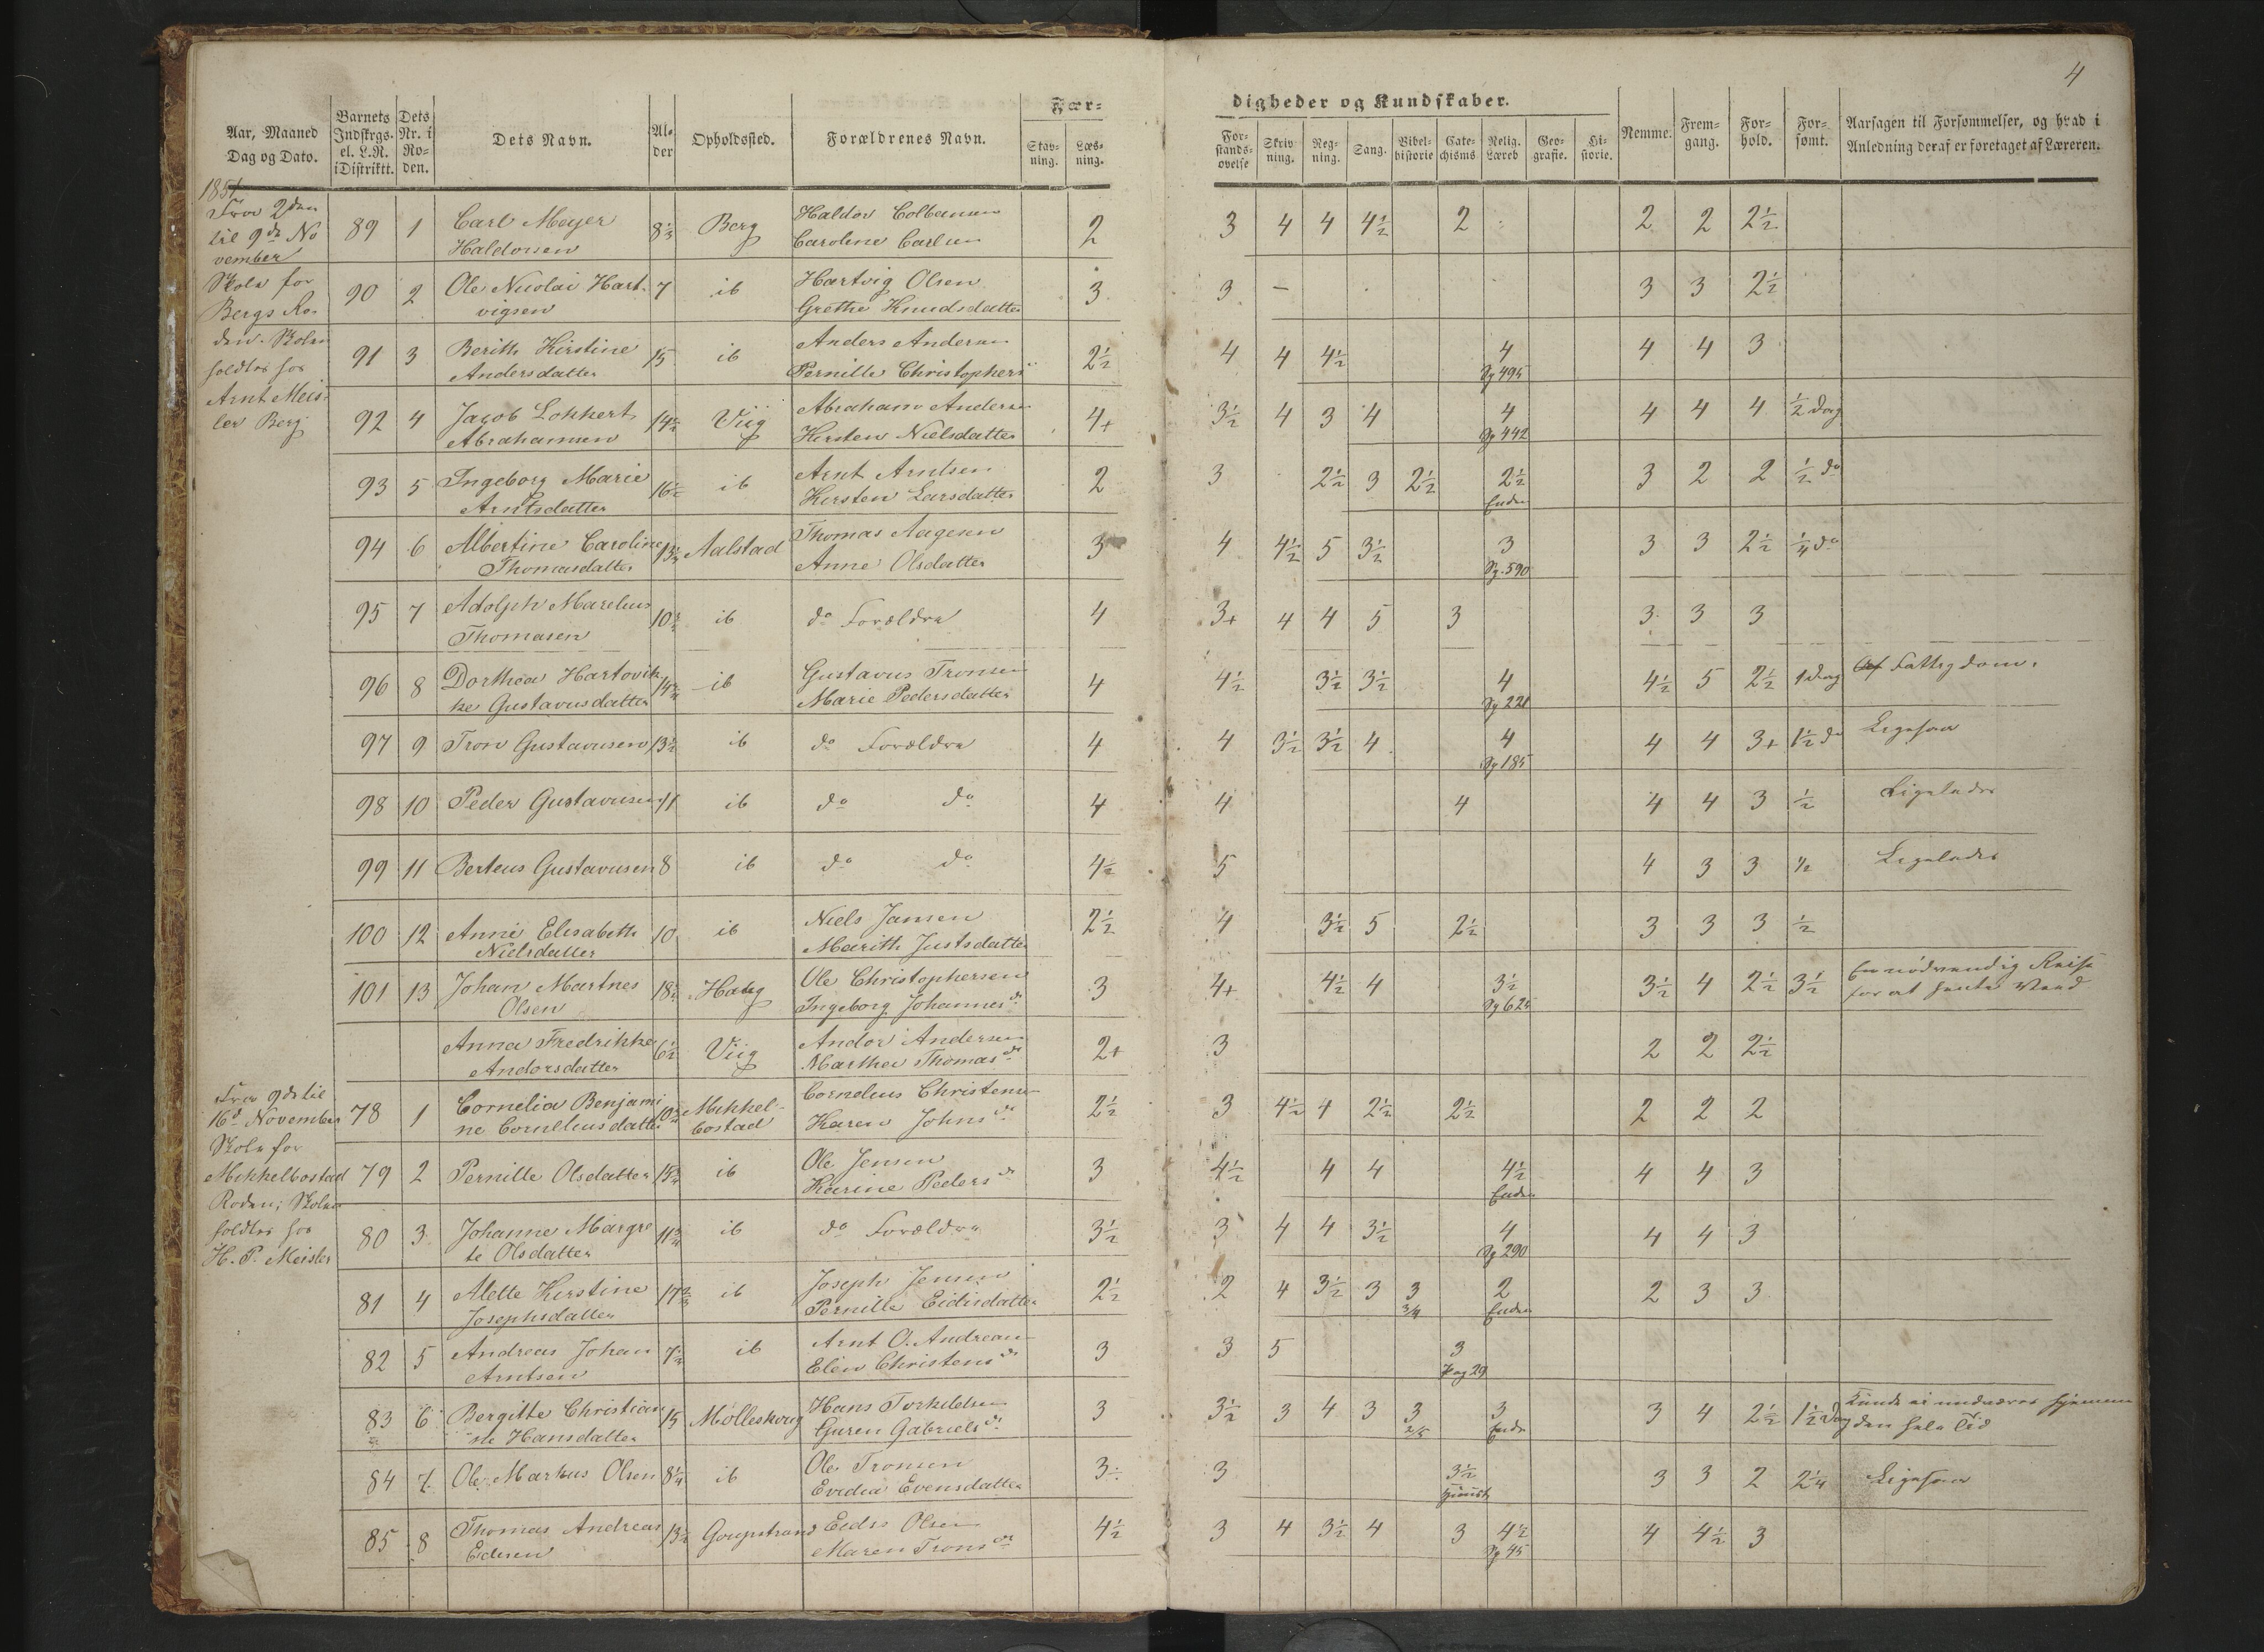 4
Færdigheder og Kundskaber.
Aar, Maaned Dag og Dato. | Barnets Indskrgs. el. L.N. i Distriktt. | Dets Nr. i Roden. | Dets Navn. | Alder | Opholdssted. | Forældrenes Navn. | Stavning. | Læsning. | Forstandsøvelse | Skrivning. | Regning. | Sang. | Bibelhistorie | Catechisms | Relig. Læreb | Geografie. | Historie. | Nemme. | Fremgang. | Forhold. | Forsømt. | Aarsagen til Forsømmelser, og hvad i Anledning deraf er foretaget af Læreren.
1851
Fra 2den
til 9de No
vember
Skole for
Bergs Ro-
den. Skolen
holdtes hos
Arnt Meis-
ler Berg
89 1 Carl Meyer Haldorsen 8 1/3 Berg Haldor Colbansen Caroline Carlsen 2 3 4 4 4½ 2 2 2 2½
90 2 Ole Nicolai Hartvigsen 7 ib Hartvig Olsen Grethe Knudsdatter 3 3 – 3 3 2½
91 3 Berith Kirstine Andersdatter 15 ib Anders Andersen Pernille Christophers 2½ 4 4 4½ 4 Sp 495 4 4 3
92 4 Jacob Lokkert Abrahamsen 14½ Viig Abraham Andersen Kirsten Nielsdatter 4+ 3½ 4 3 4 4 Sp 442 4 4 4 ½ Dag
93 5 Ingeborg Marie Arntsdatter 16½ ib Arnt Arntsen Kirsten Larsdatter 2 3 2½ 3 2½ 2½ Enden 3 2 2 ½ do
94 6 Albertine Caroline Thomasdatter 13½ Aalstad Thomas Aagesen Anne Olsdatter 3 4 4½ 5 3½ 3 Sp. 590 3 3 2½ ¼ do
95 7 Adolph Marelius Thomasen 10 ib do Forældre 4 3+ 4 4 5 3 3 3 3
96 8 Dorthea Hartovikke Gustavusdatter 14 ib Gustavus Tronsen Marie Pedersdatter 4 4½ 3½ 3½ 4 Sp 221 4½ 5 2½ 1 Dag Af Fattigdom.
97 9 Tron Gustavusen 13½ ib do Forældre 4 4 3½ 3½ 4 4 Sp 185 4 4 3+ 1½ do Ligesaa
98 10 Peder Gustavusen 11 ib do do 4 4 4 4 4 3 ½ Ligeledes
99 11 Berteus Gustavusen 8 ib do do 4½ 5 4 3 3 ½ Ligeledes
100 12 Anne Elisabeth Nielsdatter 10 ib Niels Jansen Marith Justsdatter 2½ 4 3½ 5 2½ 3 3 3 ½
101 13 Johan Martnes Olsen 18 Haug Ole Christophersen Ingeborg Johannesdr 3 4+ 4½ 4 3½ Sp 625 3½ 4 2½ 3½ En nødvendig Reise for at hente Veed
Anna Fredrikke Andorsdatter 6½ Viig Andor Andersen Marthea Thomasdr 2+ 3 2 2 2½
Fra 9de til
16de November
Skole for
Mikkelbostad
Roden; Skolen
holdtes hos
H. P. Meisler
78 1 Cornelia Benjamine Corneliusdatter 10 Mikkelbostad Cornelius Christensen Karen Johnsdr 2½ 3 4½ 4 2½ 2½ 2 2 2
79 2 Pernille Olsdatter 15 ib Ole Jensen Karine Pedersdr 3 4½ 4 4 4½ Enden 4 4 3
80 3 Johanne Margrete Olsdatter 11 ib do Forældre 3½ 3 4 4 3½ 4 Sp 290 4 4 3
81 4 Alette Kirstine Josephsdatter 17 ib Joseph Jensen Pernille Eidisdatter 2½ 2 4 3½ 3 3 3/4 2 Enden 2 3 3
82 5 Andreas Johan Arntsen 7½ ib Arnt O. Andreasen Elen Christensdr 3 3 5 3 Pag 29
83 6 Bergitte Christianne Hansdatter 15 Mølleskoug Hans Torkildsen Guren Gabrielsdr 3 3½ 3 4 3 3 2/5 3 Enden 3 4 2½ 1½ Dag Kunde ei undværes hjemme den hele Tid
84 7 Ole Markus Olsen 8¼ ib Ole Tronsen Evidia Evensdatter 3 3 3½ 3 3 2 2¼ Ligesaa
85 8 Thomas Andreas Edisen 13½ Goupstrand Eidis Olsen Maren Tronsdr 4½ 3 4 3½ 4 3 4½ Sp 45 4 4½ 3